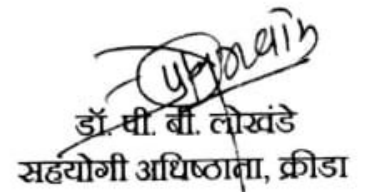 डॉ. पी. बी. लोखंडे
सहयोगी अधिष्ठाता, क्रीडा